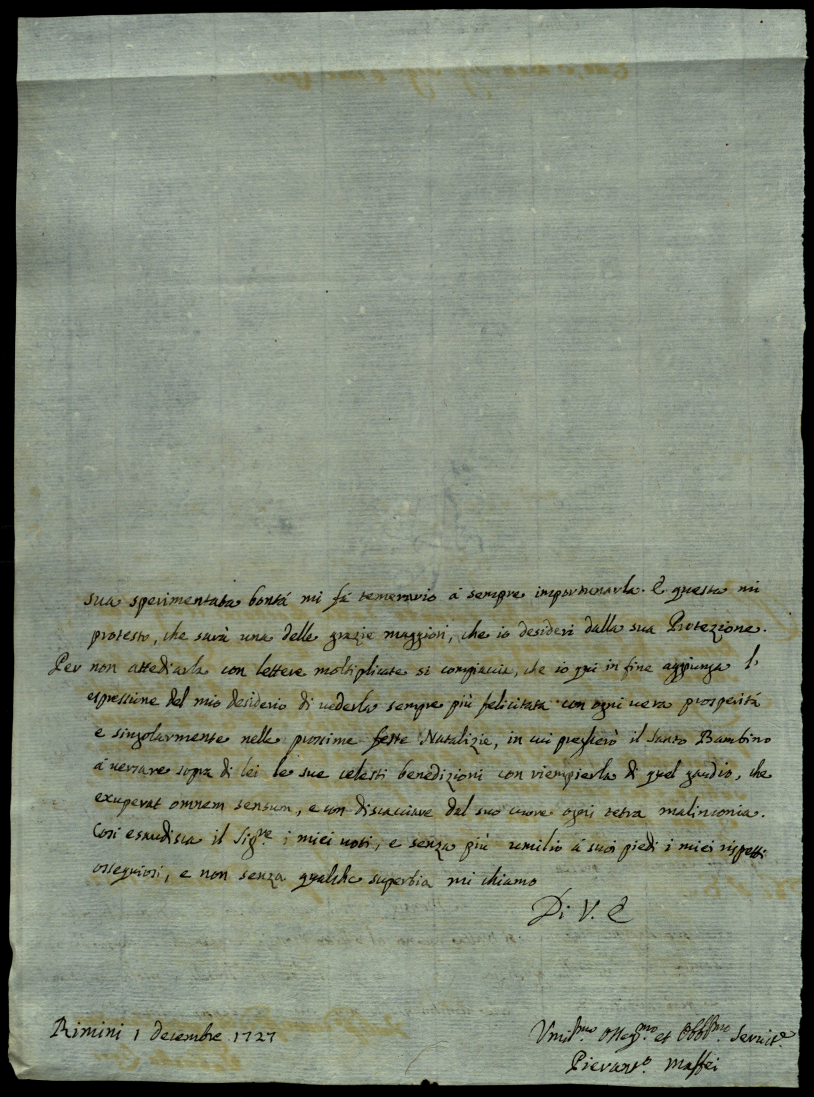 sua sperimentata bontá mi fá temerario á sempre importunarla. E questa mi
protesto, che sará una delle grazie maggiori, che io desideri dalla sua Protezione.
Per non attediarla con lettere moltiplicate si compiaccia, che io qui in fine aggiunga l'
espressione del mio desiderio di vederla sempre piú felicitata con ogni vera prosperitá
e singolarmente nelle prossime feste Natalizie, in cui pregheró il Santo Bambino
á versare sopra di lei le sue celesti benedizioni con riempierla di quel gaudio, che
exuperat omnem sensum, e con discacciare dal suo cuore ogni tetra malinconia.
Cosi esaudisca il Sig.re i miei voti, e senza piú umilio á suoi piedi i miei rispetti
ossequiosi, e non senza qualche superbia mi chiamo
Di V. E
Rimini 1 decembre 1727
Vmil.mo Osseq.mo et Obb.mo Servit.e
Pierant.o Maffei